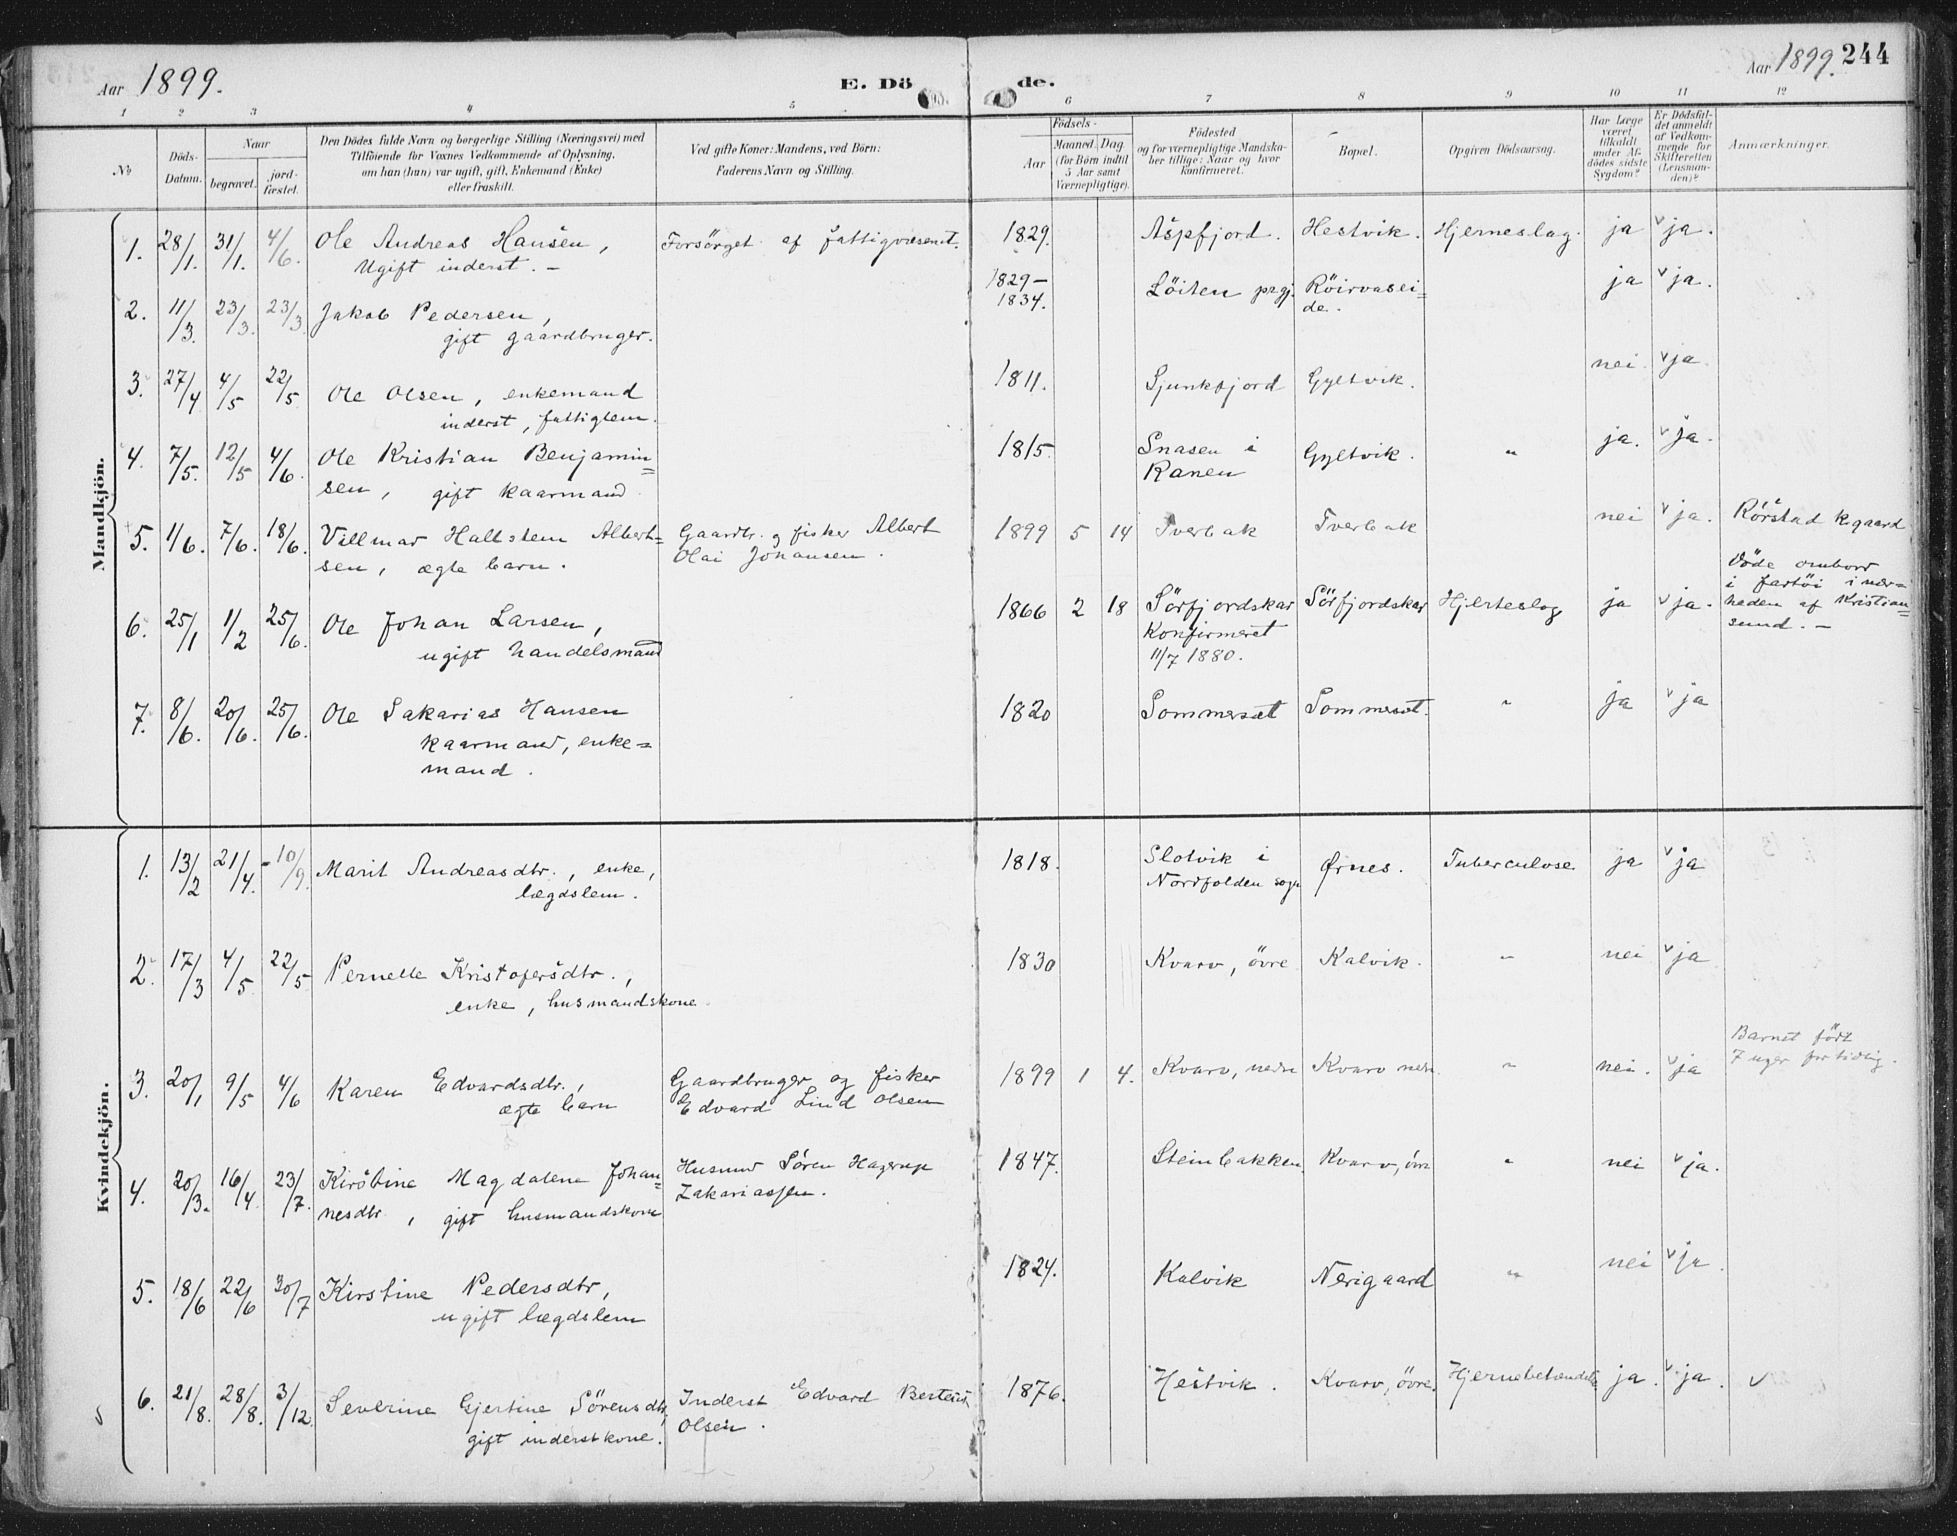 Aar 1899.
E. Dö de.
Aar 1899. 244
1 2 3 4 5 6 7 8 9 10 11 12
No
Döds-Datum.
Naar
begravet.
jord-fæstet.
Den Dödes fulde Navn og borgerlige Stilling (Næringsvei) med
Tilföiende for Voxnes Vedkommende af Oplysning,
om han (hun) var ugift, gift, Enkemand (Enke)
eller fraskilt.
Ved gifte Koner: Mandens, ved Börn:
Faderens Navn og Stilling.
Födsels-
Aar
Maaned. Dag.
(for Börn indtil
5 Aar samt
Værnepligtige).
Födested
og for værnepligtige Mandska-
ber tillige: Naar og hvor
konfirmeret.
Bopæl.
Opgiven Dödsaarsag.
Har Læge
været
tilkaldt
under Af-
dödes sidste
Sygdom?
Er Dödsfal-
det anmeldt
af Vedkom-
mende for
Skifteretten
(Lensman-
den)?
Anmærkninger.
Mandkjön.
1. 28/1. 31/1. 4/6. Ole Andreas Hansen, Forsörget af fattigvæsenet. 1829. Aspfjord. Hestvik. Hjerneslag. ja v ja.
Ugift inderst. –
2. 11/3. 23/3. 23/3 Jakob Pedersen, 1829– Löiten prgj. Röirvasei= ja v ja.
gift gaardbruger. 1834. de.
3. 27/4 4/5 22/5 Ole Olsen, enkemand 1811. Sjunkfjord Gyltvik. nei. v ja.
inderst, fattiglem.
4. 7/5. 12/5 4/6. Ole Kristian Benjamin= 1815. Snasen i Gyltvik. " ja. v ja.
sen, gift kaarmand. Ranen
5. 1/6. 7/6. 18/6. Villmar Hallstein Albert= Gaardbr. og fisker Albert 1899 5 14 Tverbak Tverbak nei v ja. Rörstad kgaard
sen, ægte barn. Olai Johansen.
6. 25/1 1/2 25/6. Ole Johan Larsen, 1866 2 18 Sörfjordskar Sörfjordskar Hjerteslag ja v ja. Döde ombord
i fartöi i nær=
heden af Kristian=
sund. –
ugift handelsmand Konfirmeret
11/7 1880.
7. 8/6. 20/6. 25/6. Ole Sakarias Hansen 1820 Sommerset Sommerset. " ja v ja
kaarmand, enke=
mand.
Kvindekjön.
1. 13/2 21/4. 10/9. Marit Andreasdtr., enke, 1818. Slotvik i Ørnes. Tuberculose ja v ja
lægdslem. Nordfolden sogn
2. 17/3 4/5. 22/5 Pernelle Kristofersdtr., 1830 Kvarv, övre Kalvik. " nei v ja
enke, husmandskone.
3. 20/1 9/5 4/6 Karen Edvardsdtr., Gaardbruger og fisker 1899 1 4. Kvarv, nedre Kvarv nedr. " nei. v ja Barnet födt
7 uger for tidlig.
ægte barn Edvard Lind Olsen
4. 20/3. 16/4 23/7. Kirstine Magdalena Johan= Husmd Sören Hagerup 1847. Steinbakken Kvarv, övr " nei v ja.
nesdtr., gift husmandskone Zakariassen.
5. 18/6 22/6 30/7 Kirstine Pedersdtr, 1824. Kalvik Nerigaard " nei v ja.
ugift lægdslem
6. 21/8. 28/8. 3/12. Severine Gjertine Sörensdtr, Inderst Edvard 1876. Hestvik. Kvarv, övre. Hjernebetændelse ja. v ja. v
gift inderstkone. Olsen.